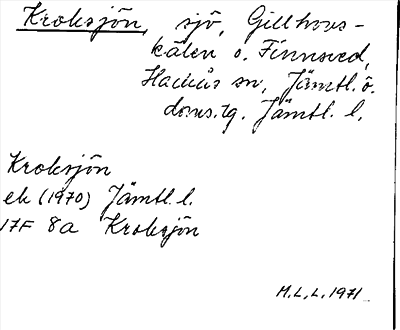 Kroksjön, sjö, Gillhovs-
kälen o. Finnsved,
Hackås sn, Jämtl. ö.
doms.tg. Jämtl. l.
Kroksjön
ek (1970) Jämtl. l.
17F 8a Kroksjön
M.L.L. 1971